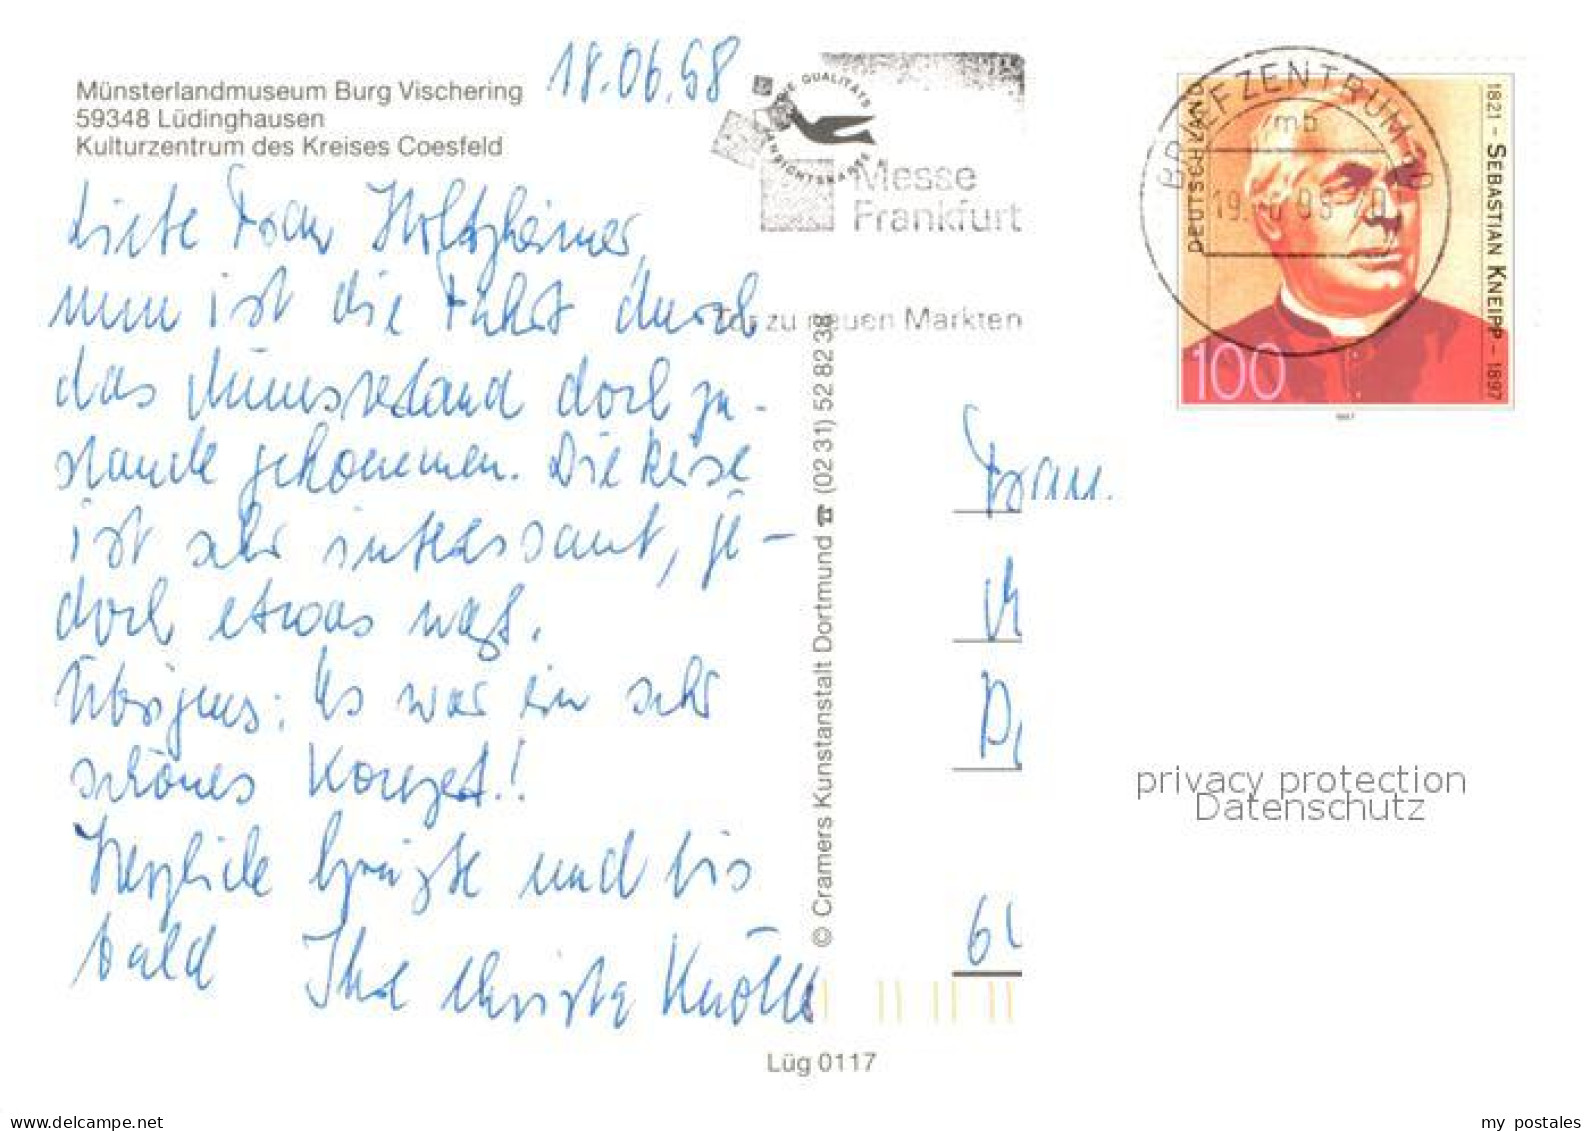 Münsterlandmuseum Burg Vischering
59348 Lüdinghausen
Kulturzentrum des Kreises Coesfeld
18.06.98
Liebe Frau Holtzheimer,
nun ist die Fahrt durch
das Münsterland doch zu-
stande gekommen. Die Reise
ist sehr interessant, je-
doch etwas naß.
Übrigens: Es war ein sehr
schönes Konzert!
Herzliche Grüße und bis
bald Ihre Christa Knölle
© Cramers Kunstanstalt Dortmund ☎ (02 31) 52 82 38
Lüg 0117
QUALITÄTS
ANSICHTSKARTE
Messe
Frankfurt
Tor zu neuen Märkten
BRIEFZENTRUM
mb
DEUTSCHLAND
1821 – SEBASTIAN KNEIPP – 1897
100
1997
Frau
privacy protection
Datenschutz
www.delcampe.net
my_postales